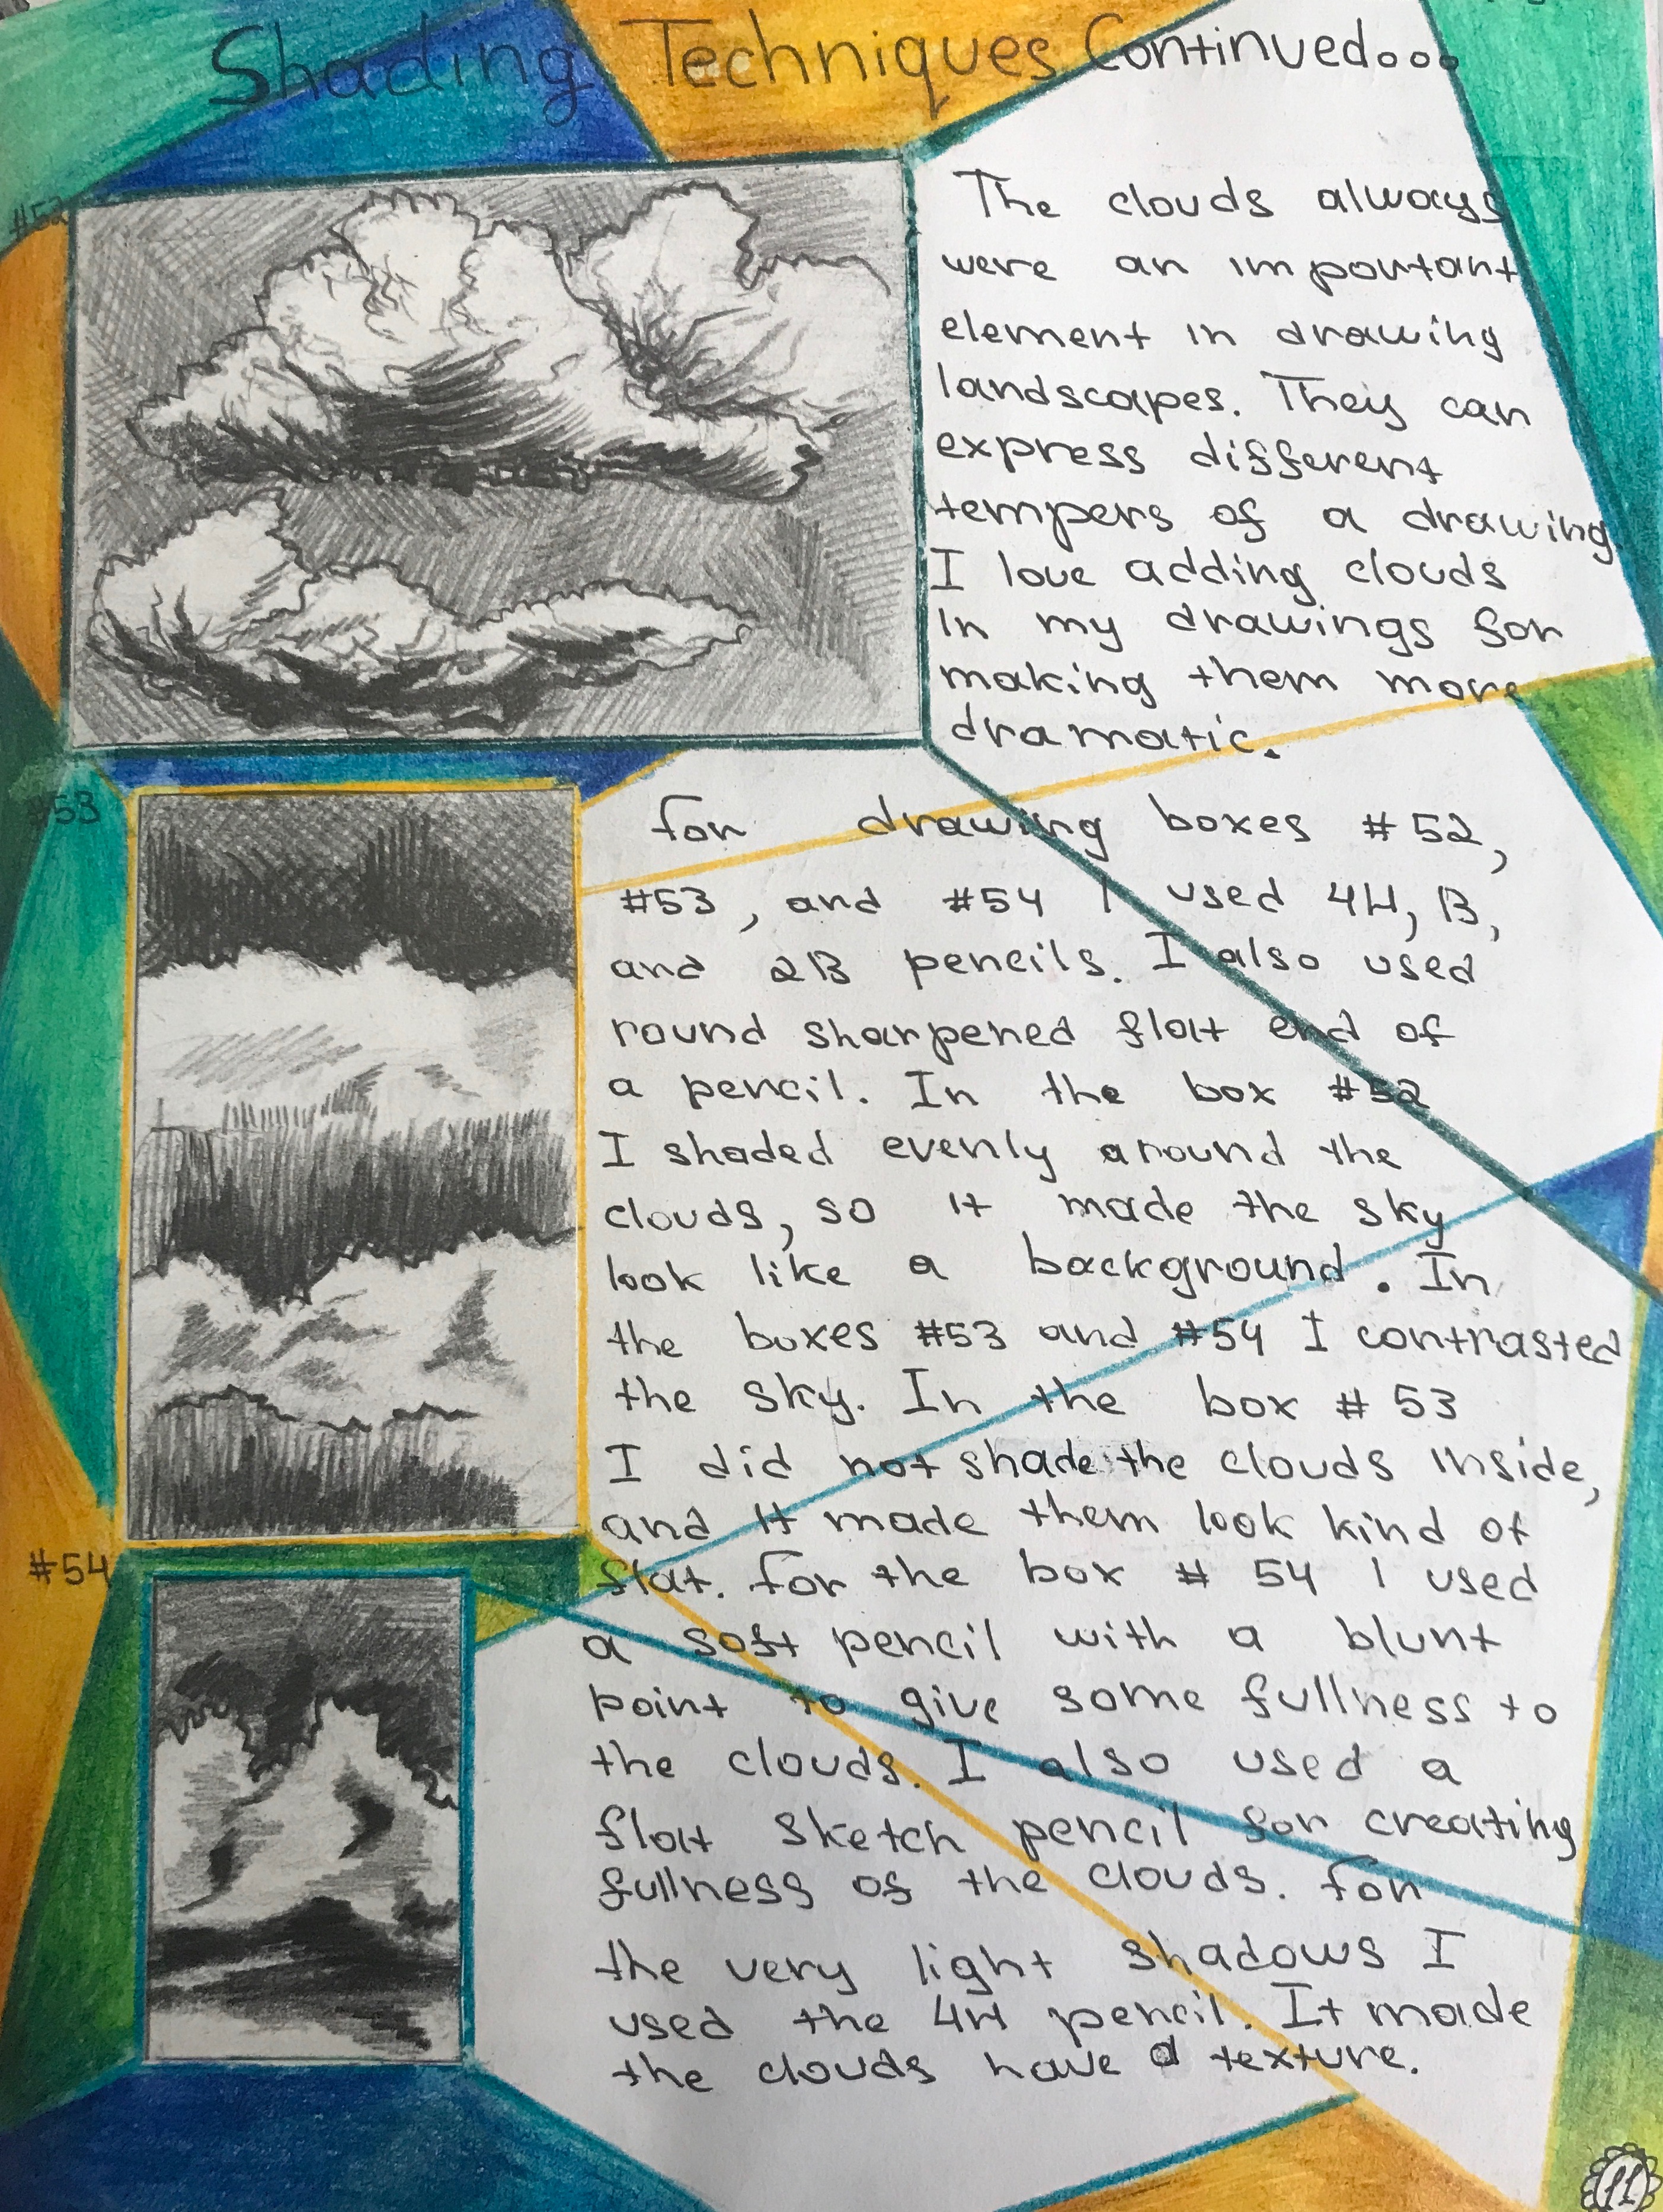 Shading Techniques Continued...
#52
The clouds always
were an important
element in drawing
landscapes. They can
express different
tempers of a drawing
I love adding clouds
In my drawings for
making them more
dramatic.
#53
for drawing boxes #52,
#53, and #54 I used 4H, B,
and 2B pencils. I also used
round sharpened flat end of
a pencil. In the box #52
I shaded evenly around the
clouds, so it made the sky
look like a background. In
the boxes #53 and #54 I contrasted
the sky. In the box #53
I did not shade the clouds inside,
and it made them look kind of
#54
flat. for the box #54 I used
a soft pencil with a blunt
point to give some fullness to
the clouds. I also used a
flat sketch pencil for creating
fullness of the clouds. for
the very light shadows I
used the 4H pencil. It made
the clouds have a texture.
11